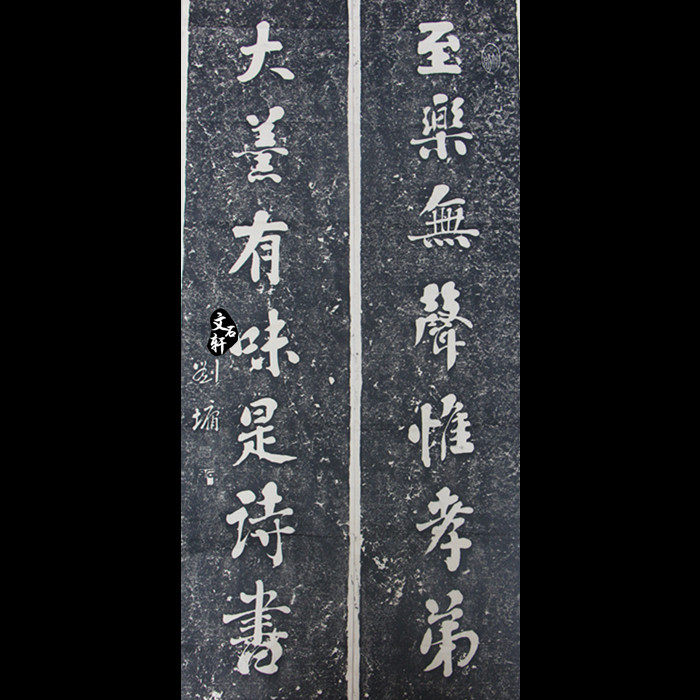 至樂無聲惟孝弟
大羹有味是詩書
劉墉
文石轩